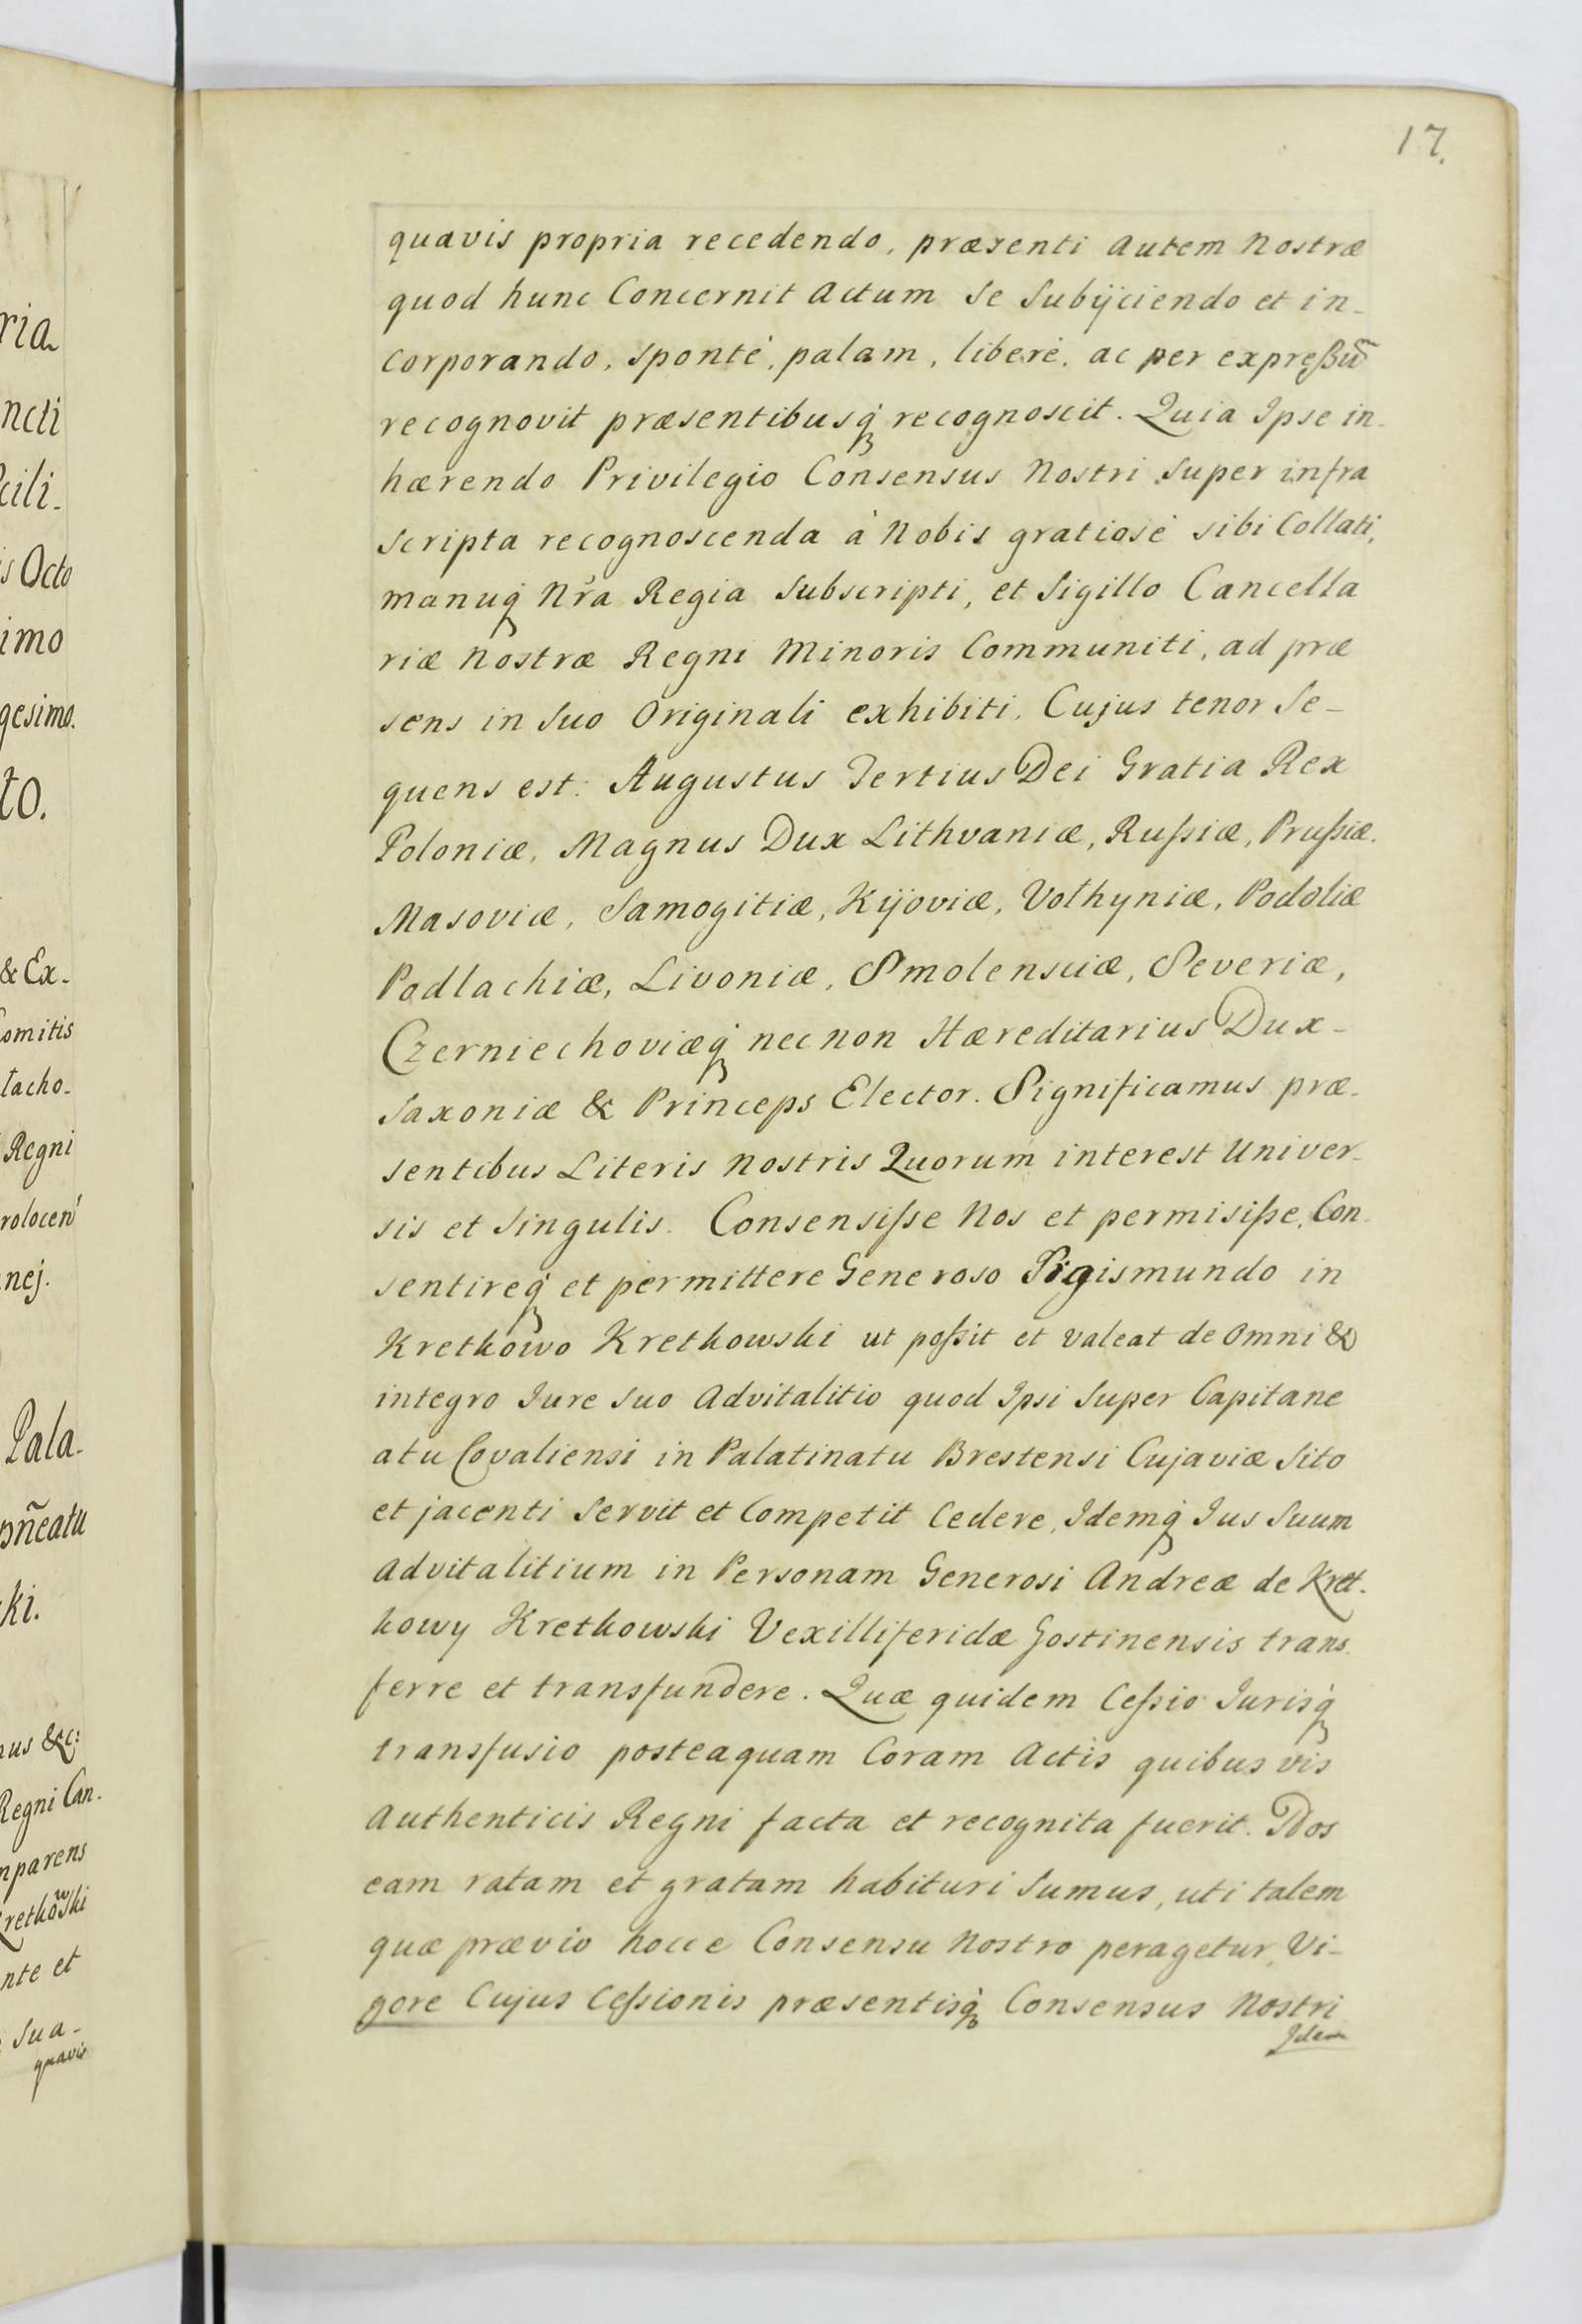 17.
quavis propria recedendo, præsenti autem Nostræ
quod hunc Concernit Actum se Subijciendo et in-
corporando, spontè, palam, liberè, ac per expreßũ
recognovit præsentibusq́ recognoscit. Quia Ipse in-
hærendo Privilegio Consensus Nostri super infra
scripta recognoscenda à Nobis gratiosè sibi Collati,
manuq́ Nr̃a Regia Subscripti, et Sigillo Cancella
riæ Nostræ Regni Minoris Communiti, ad præ
sens in Suo Originali exhibiti. Cujus tenor Se-
quens est: Augustus Tertius Dei Gratia Rex
Poloniæ, Magnus Dux Lithvaniæ, Rußiæ, Prußiæ.
Masoviæ, Samogitiæ, Kijoviæ, Volhyniæ, Podoliæ
Podlachiæ, Livoniæ, Smolensciæ, Severiæ,
Czerniechoviæq́ nec non Hæreditarius Dux-
Saxoniæ & Princeps Elector. Significamus præ-
sentibus Literis Nostris Quorum interest Univer-
sis et Singulis. Consensiße Nos et permisiße, Con-
sentireq́ et permittere Generoso Sigismundo in
Kretkowo Kretkowski ut poßit et valeat de Omni &
integro Jure suo Advitalitio quod Ipsi Super Capitane
atu Covaliensi in Palatinatu Brestensi Cujaviæ Sito
et jacenti Servit et Competit Cedere, Idemq́ Jus Suum
Advitalitium in Personam Generosi Andreæ de Kret-
kowy Kretkowski Vexilliferidæ Gostinensis trans-
ferre et transfundere. Quæ quidem Ceßio Jurisq́
transfusio posteaquam Coram Actis quibus vis
Authenticis Regni facta et recognita fuerit. Nos
eam ratam et gratam habituri Sumus, uti talem
quæ prævio hocce Consensu Nostro peragetur, Vi-
gore Cujus Ceßionis præsentisq́ Consensus Nostri
Idem
ria
ncti
cili-
is Octo
imo
gesimo.
to.
& Ex-
Comitis
tacho-
Regni
rolocen
nej.
Pala-
pñeatu
ki.
nus &c:
Regni Can-
mparens
Krethowski
nte et
Sua-
quavis